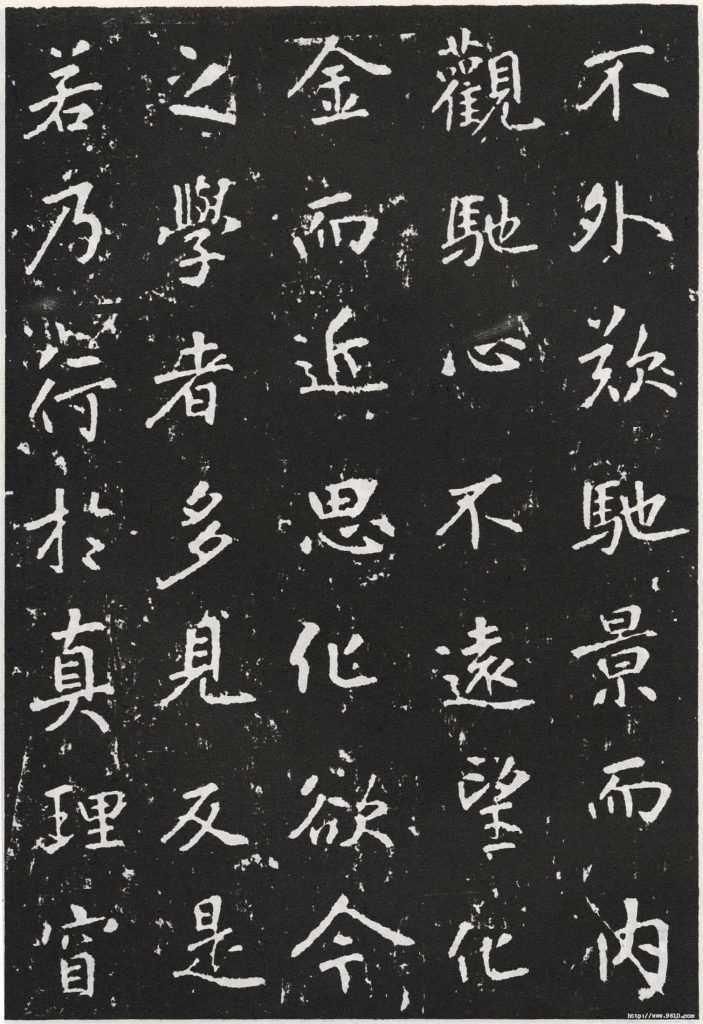 不外欻馳景而内
觀馳心不遠望化
金而近思化欲今
之學者多見反是
若乃行於真理窅
http://www.9610.com